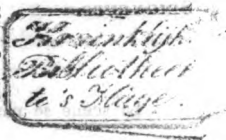 Koninklijk
Bibliotheek
te 's Hage.